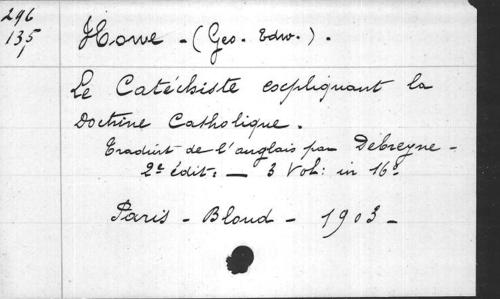 296
135
1
Howe - (Geo. Edw.) .
Le Catéchiste expliquant la
Doctrine Catholique .
Traduit de l'anglais par Debreyne -
2e édit: — 3 Vol: in 16o
Paris - Bloud - 1903 -